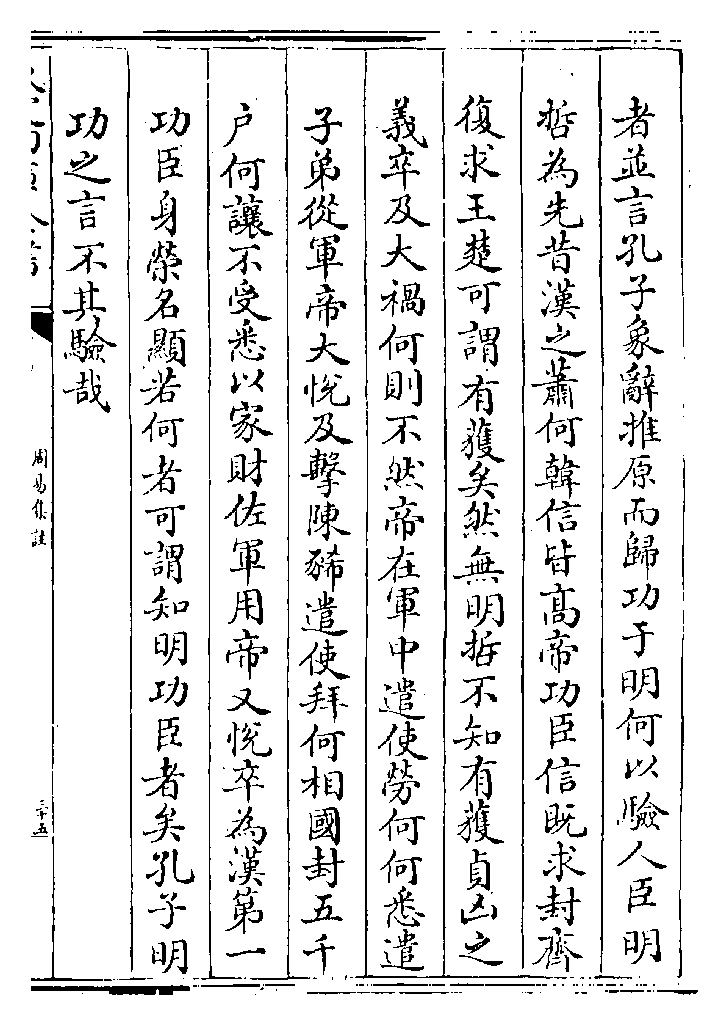 者並言孔子象辭推原而歸功于明何以驗人臣明
哲為先昔漢之蕭何韓信皆髙帝功臣信既求封齊
復求王楚可謂有獲矣然無明哲不知有獲貞凶之
義卒及大禍何則不然帝在軍中遣使勞何何悉遣
子弟從軍帝大悅及擊陳豨遣使拜何相國封五千
户何讓不受悉以家財佐軍用帝又悅卒為漢第一
功臣身榮名顯若何者可謂知明功臣者矣孔子明
功之言不其驗哉
周易集註
三十五